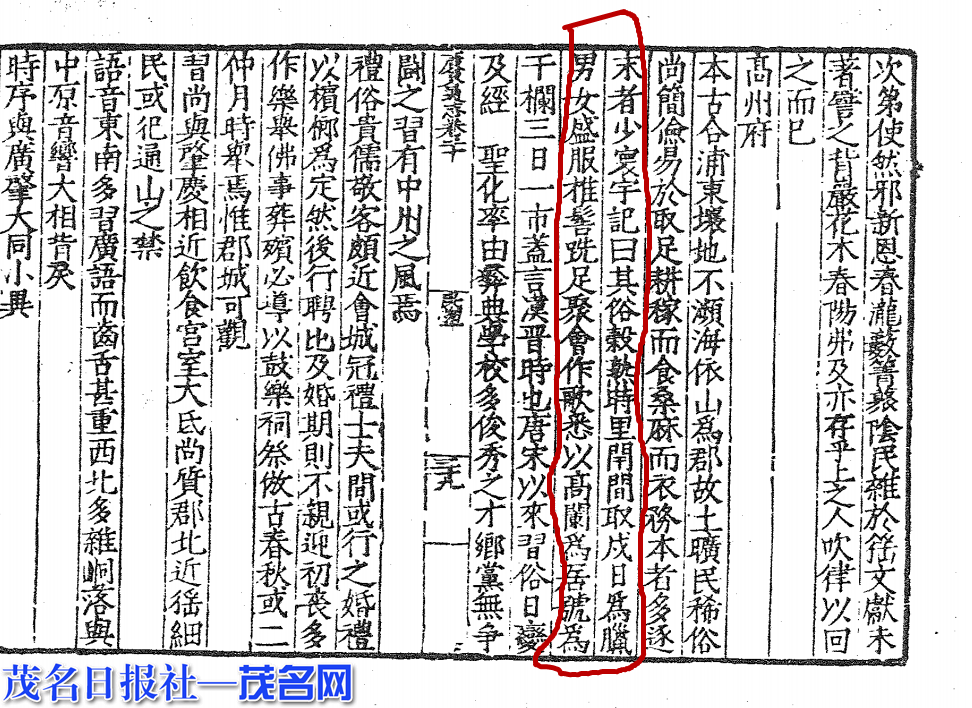 次第使然邪新恩春瀧藪箐襲陰民雜於猺文獻未
著窨之背巖花木春陽弗及亦存乎上之人吹律以回
之而已
高州府
本古合浦東壤地不瀕海依山爲郡故土曠民稀俗
尚簡儉易於取足耕稼而食桑麻而衣務本者多逐
末者少寰宇記曰其俗穀熟時里閈間取戍日爲臘
男女盛服椎髻跣足聚會作歌悉以高闌爲居號爲
干欄三日一市蓋言漢晉時也唐宋以來習俗日變
及經 聖化率由彞典學校多俊秀之才鄉黨無爭
三十九
鬪之習有中州之風焉
禮俗貴儒敬客頗近會城冠禮士夫間或行之婚禮
以檳榔爲定然後行聘比及婚期則不親迎初喪多
作樂舉佛事葬殯必導以鼓樂祠祭倣古春秋或二
仲月時舉焉惟郡城可觀
習尚與肇慶相近飲食宮室大氐尚質郡北近猺細
民或犯通山之禁
語音東南多習廣語而齒舌甚重西北多雜峒落與
中原音響大相背戾
時序與廣肇大同小異
茂名日报社—茂名网